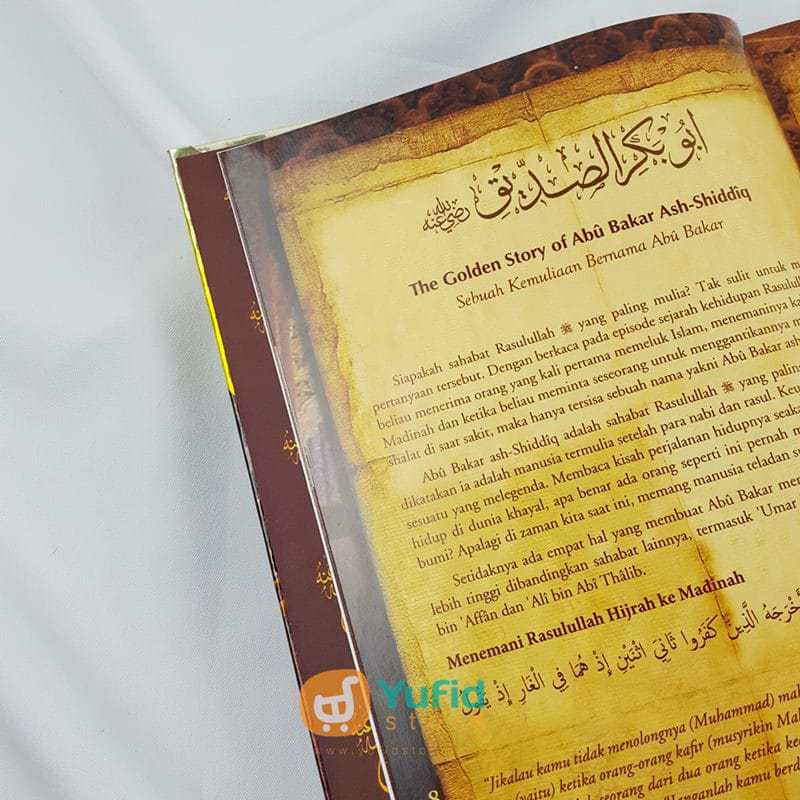 ابُو بَكْرٍ الصِّدِّيْقِ
رضي الله عنه
The Golden Story of Abû Bakar Ash-Shiddîq
Sebuah Kemuliaan Bernama Abû Bakar
Siapakah sahabat Rasulullah ﷺ yang paling mulia? Tak sulit untuk
pertanyaan tersebut. Dengan berkaca pada episode sejarah kehidupan
beliau menerima orang yang kali pertama memeluk Islam, menemaninya
Madinah dan ketika beliau meminta seseorang untuk menggantikannya
shalat di saat sakit, maka hanya tersisa sebuah nama yakni Abû Bakar
Abû Bakar ash-Shiddîq adalah sahabat Rasulullah ﷺ yang paling
dikatakan ia adalah manusia termulia setelah para nabi dan rasul.
sesuatu yang melegenda. Membaca kisah perjalanan hidupnya
hidup di dunia khayal, apa benar ada orang seperti ini pernah
bumi? Apalagi di zaman kita saat ini, memang manusia teladan
Setidaknya ada empat hal yang membuat Abû Bakar
lebih tinggi dibandingkan sahabat lainnya, termasuk 'Umar
bin 'Affân dan 'Alî bin Abî Thâlib.
Menemani Rasulullah Hijrah ke Madinah
أَخْرَجَهُ الَّذِينَ كَفَرُوا ثَانِيَ اثْنَيْنِ إِذْ هُمَا فِي الْغَارِ إِذْ يَقُولُ
"Jikalau kamu tidak menolongnya (Muhammad)
(yaitu) ketika orang-orang kafir (musyrikin
seorang dari dua orang ketika
Yufid
store